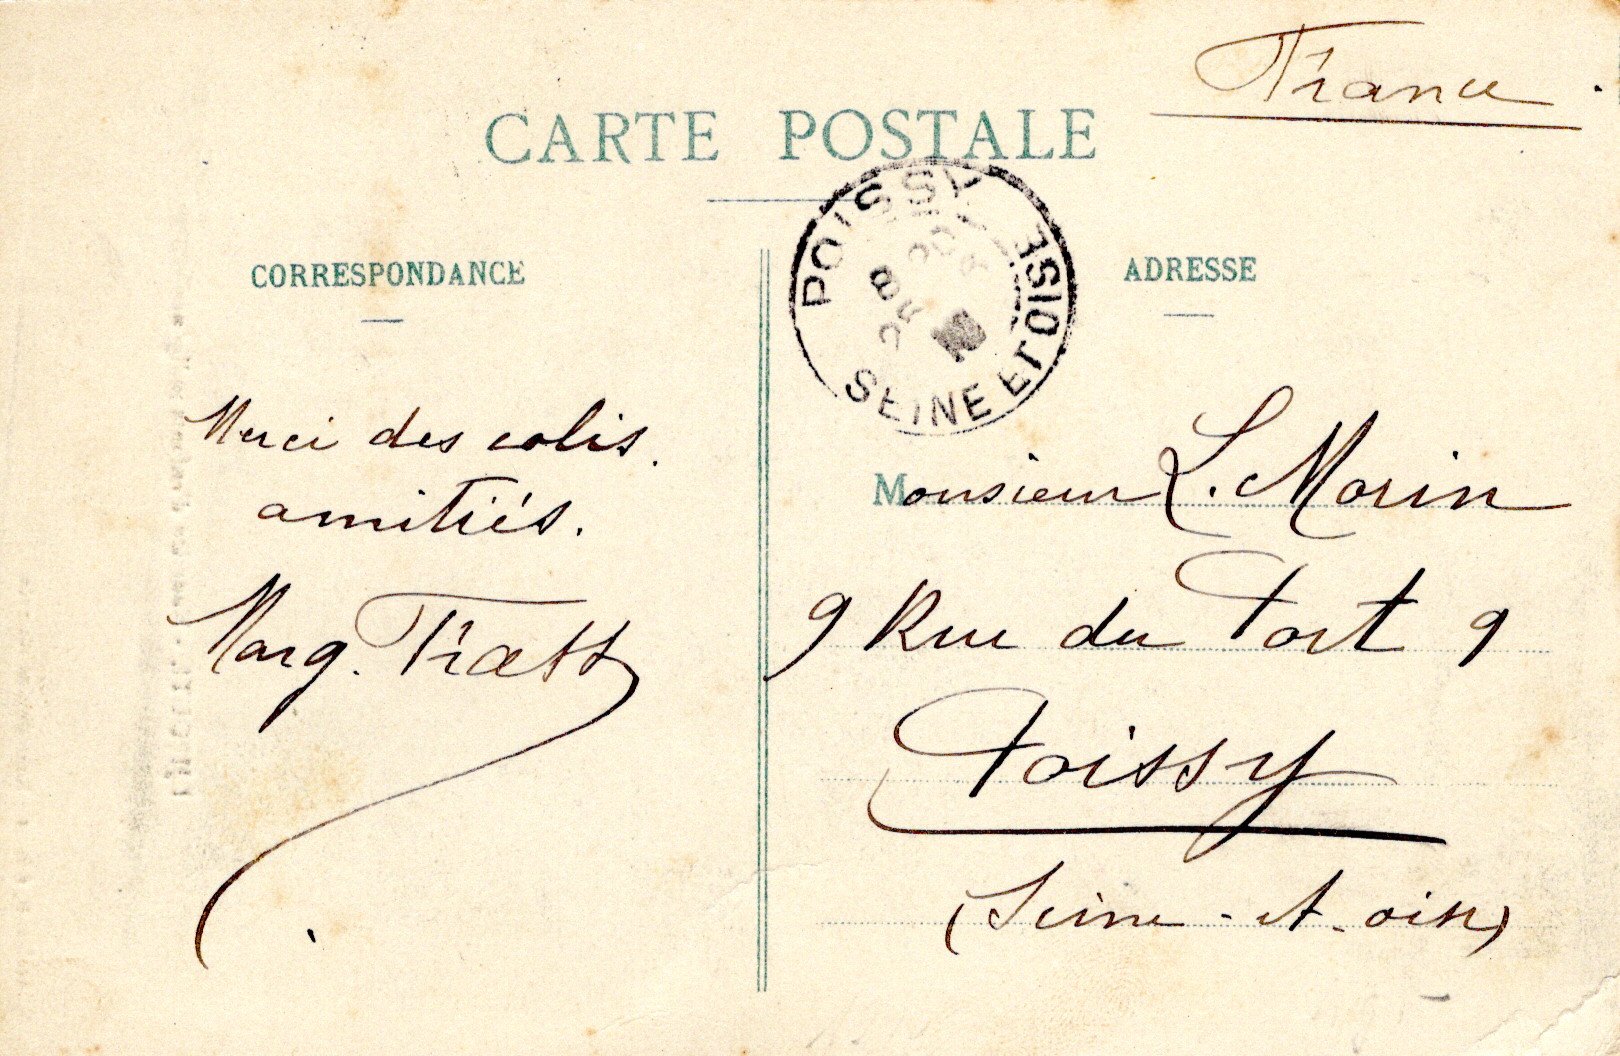 France
CARTE POSTALE
POISSY
SEINE ET OISE
CORRESPONDANCE
ADRESSE
Merci des colis.
amitiés.
Marg.
Monsieur L. Morin
9 Rue du Port 9
Poissy
(Seine-et-oise)